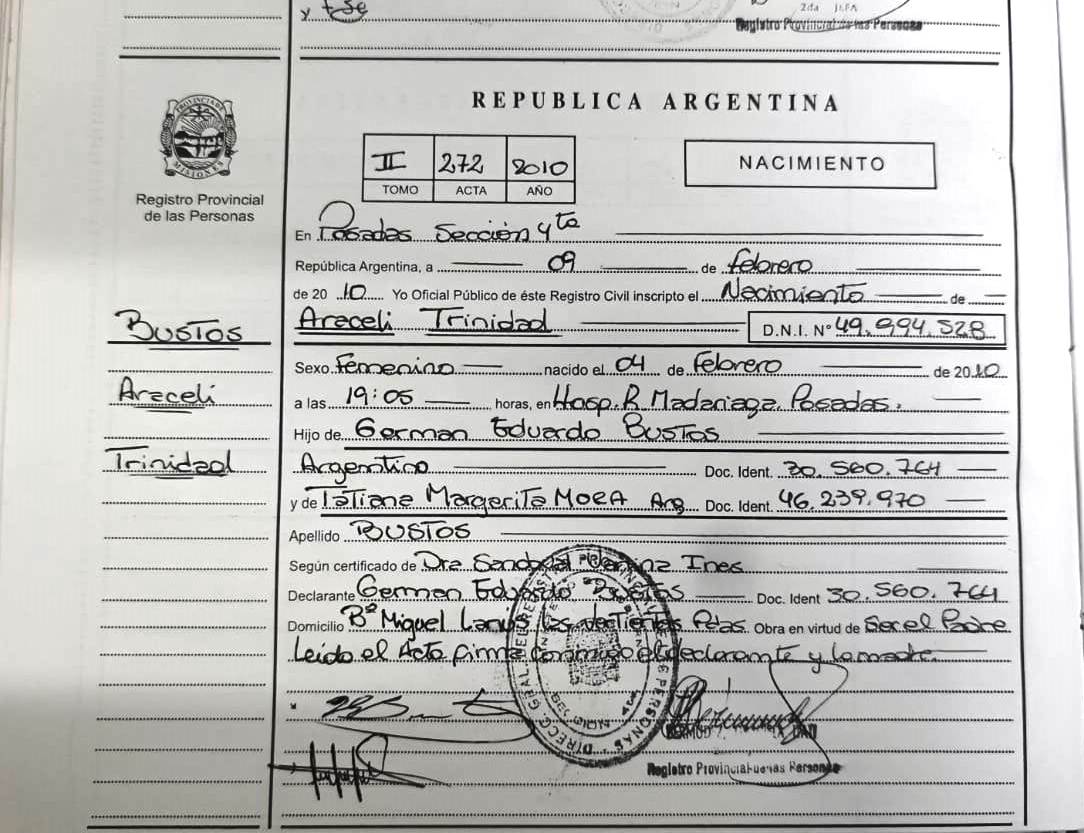 y ese
2da
Registro Provincial de las Personas
PROVINCIA DE MISIONES
Registro Provincial
de las Personas
REPUBLICA ARGENTINA
II 272 2010
TOMO ACTA AÑO
NACIMIENTO
En Posadas Sección 4ta
República Argentina, a 09 de febrero
de 20 10 Yo Oficial Público de éste Registro Civil inscripto el Nacimiento de
BUSTOS
Araceli Trinidad D.N.I. N° 49.994.528
Sexo Femenino nacido el 04 de Febrero de 20 10
Araceli
a las 19:05 horas, en Hosp. R. Madariaga. Posadas.
Hijo de German Eduardo BUSTOS
Trinidad
Argentino Doc. Ident. 30.560.764
y de Tatiana Margarita MORA Arg. Doc. Ident. 46.239.970
Apellido BUSTOS
Según certificado de Dra Sandoval Ines
Declarante German Eduardo Bustos Doc. Ident 30.560.764
Domicilio B° Miguel Lanús las Vertientes Pdas. Obra en virtud de Ser el Padre
Leído el Acta firma conmigo el declarante y la madre.
Registro Provincial de las Personas